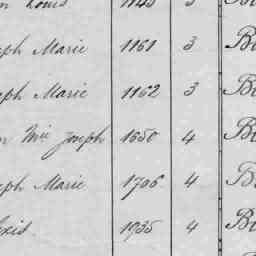 Louis 1145 3
ph Marie 1161 3 B
eph Marie 1162 3 B
Mie Joseph 1650 4 B
eph Marie 1706 4 B
exis 1735 4 B